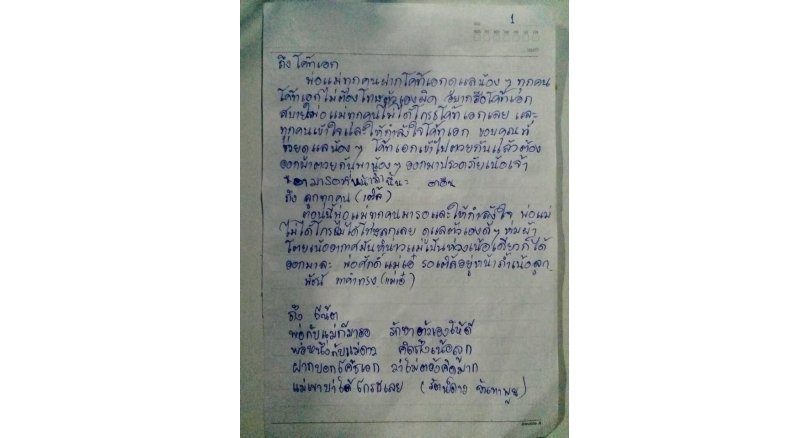 1
ถึง โค้ทเอก
พ่อแม่ทุกคนฝากโค้ทเอกดูแลน้องๆ ทุกคน
โค้ทเอกไม่ต้องโทษตัวเองผิด อยากรือโค้ทเอก
สบายใจพ่อแม่ทุกคนไม่ได้โกรธโค้ทเอกเลย และ
ทุกคนเข้าใจและให้กำลังใจโค้ทเอก ขอบคุณที่
ช่วยดูแลน้องๆ โค้ทเอกเข้าไปด้วยกันแล้วต้อง
ออกมาด้วยกันพาน้องๆ ออกมาปลอดภัยเน้อเจ้า
มารอที่หน้าถ้ำ
ถึง ลูกทุกคน (เติ้ล)
ตอนนี้พ่อแม่ทุกคนมารอและให้กำลังใจ พ่อแม่
ไม่ได้โกรธไม่ได้โทษลูกเลย ดูแลตัวเองดีๆ ห่มผ้า
โตยเน้ออากาศมันหนาวแม่เป็นห่วงเน้อเดียวก็ได้
ออกมาละ พ่อศักดิ์แม่เอ๋ รอเติ้ลอยู่หน้าถ้ำเน้อลูก
พัชนี ทาคำทรง (แม่เอ๋)
ถึง ธีน้ต
พ่อกับแม่ก็มารอ รักษาตัวเองให้ดี
พ่อหนึ่งกับแม่ดาว คิดถึงเน้อลูก
ฝากบอกโค้ชเอก ว่าไม่ต้องคิดมาก
แม่เขาบ่าได้โกรธเลย